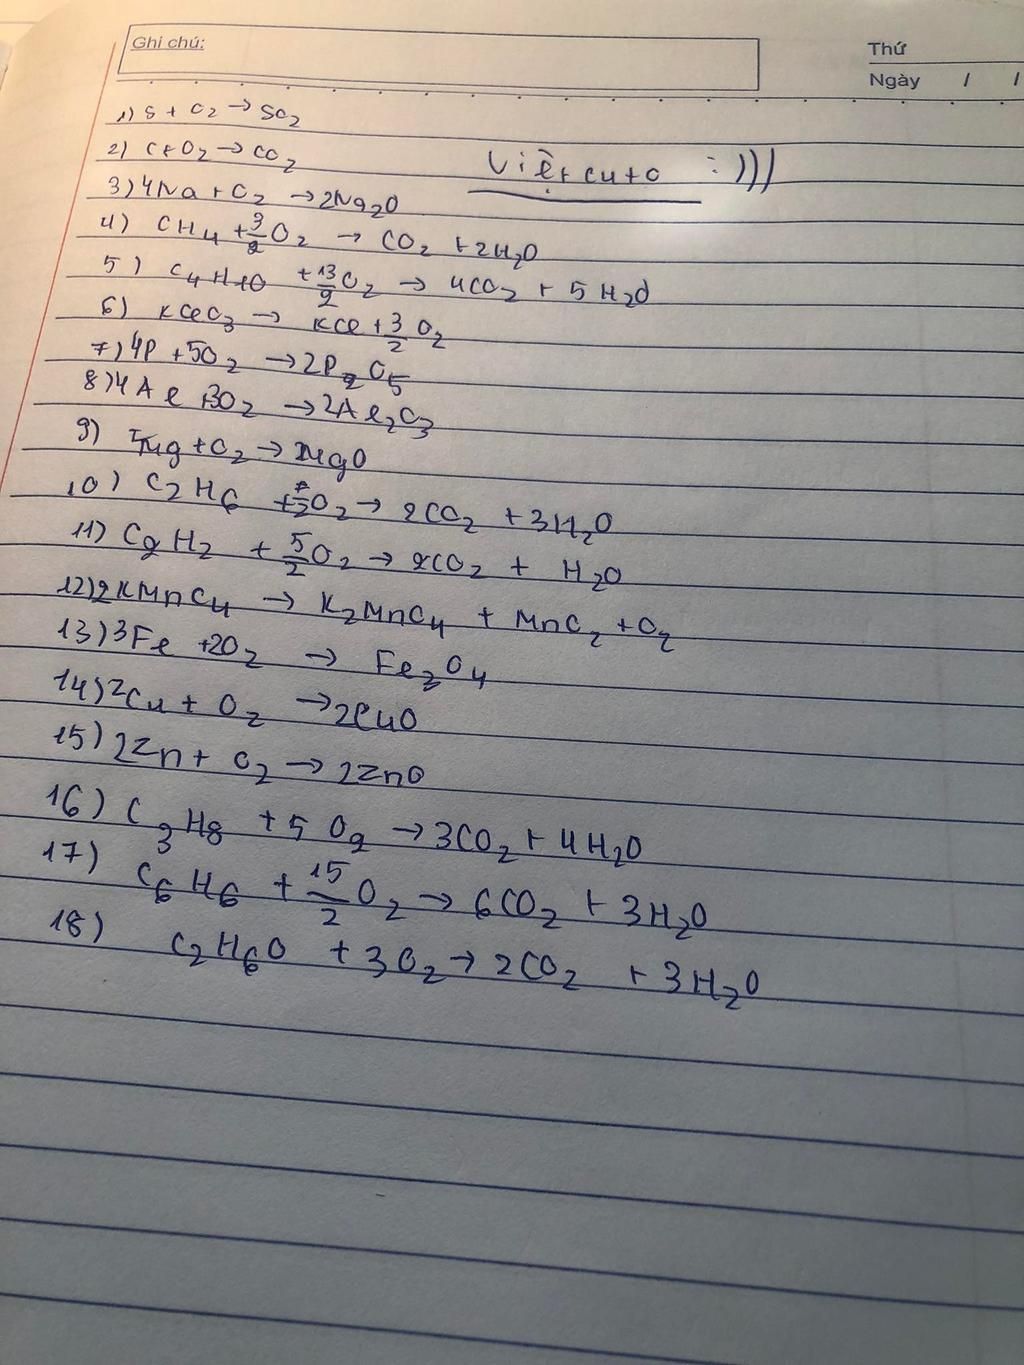 Ghi chú:
Thứ
Ngày / /
1) S + O₂ → SO₂
2) C+O₂ → CO₂
Việt cuto :)))
3) 4Na + O₂ → 2Na₂O
4) CH₄ + 3/2 O₂ → CO₂ + 2H₂O
5) C₄H₁₀ + 13/2 O₂ → 4CO₂ + 5H₂O
6) KClO₃ → KCl + 3/2 O₂
7) 4P + 5O₂ → 2P₂O₅
8) 4Al + 3O₂ → 2Al₂O₃
9) Mg + O₂ → MgO
10) C₂H₆ + 7/2 O₂ → 2CO₂ + 3H₂O
11) C₂H₂ + 5/2 O₂ → 2CO₂ + H₂O
12) 2KMnO₄ → K₂MnO₄ + MnO₂ + O₂
13) 3Fe + 2O₂ → Fe₃O₄
14) 2Cu + O₂ → 2CuO
15) 2Zn + O₂ → 2ZnO
16) C₃H₈ + 5O₂ → 3CO₂ + 4H₂O
17) C₆H₆ + 15/2 O₂ → 6CO₂ + 3H₂O
18) C₂H₆O + 3O₂ → 2CO₂ + 3H₂O